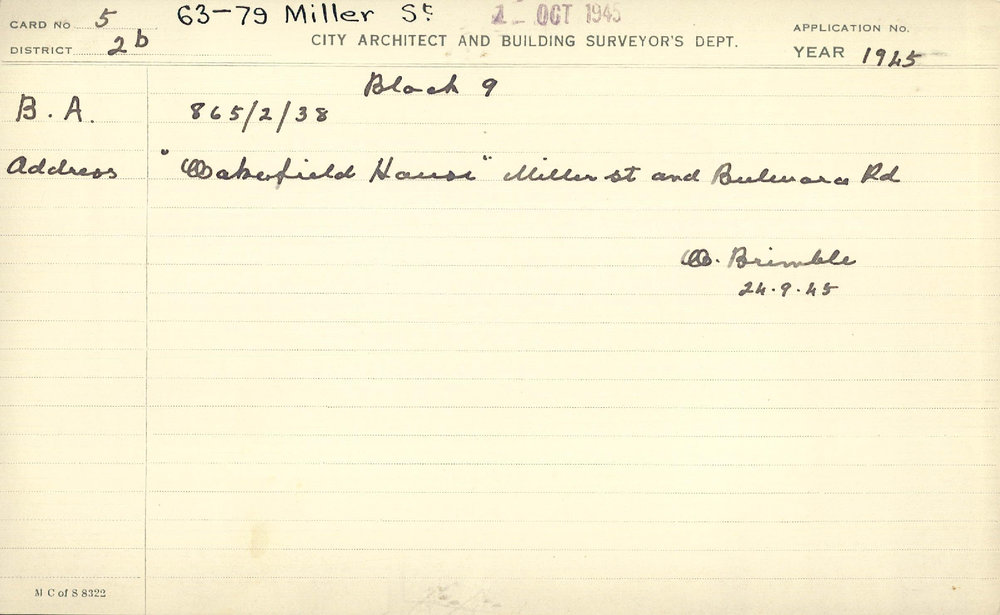 CARD No 5 63-79 Miller St 1 - OCT 1945 APPLICATION No.
DISTRICT 2b CITY ARCHITECT AND BUILDING SURVEYOR'S DEPT. YEAR 1945
Block 9
B. A. 865/2/38
Address "Wakefield House" Miller st and Bulwara Rd
W. Brimble
24.9.45
M C of S 8322